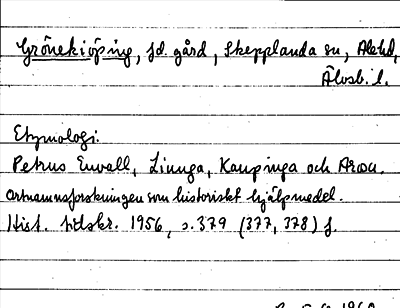 Gröneköping, fd. gård, Skepplanda sn, Ale hd,
Älvsb. l.
Etymologi.
Petrus Envall, Liunga, Kaupinga och Arosa.
Ortnamnsforskningen som historiskt hjälpmedel.
Hist. tidskr. 1956, s. 379 (377, 378) f.